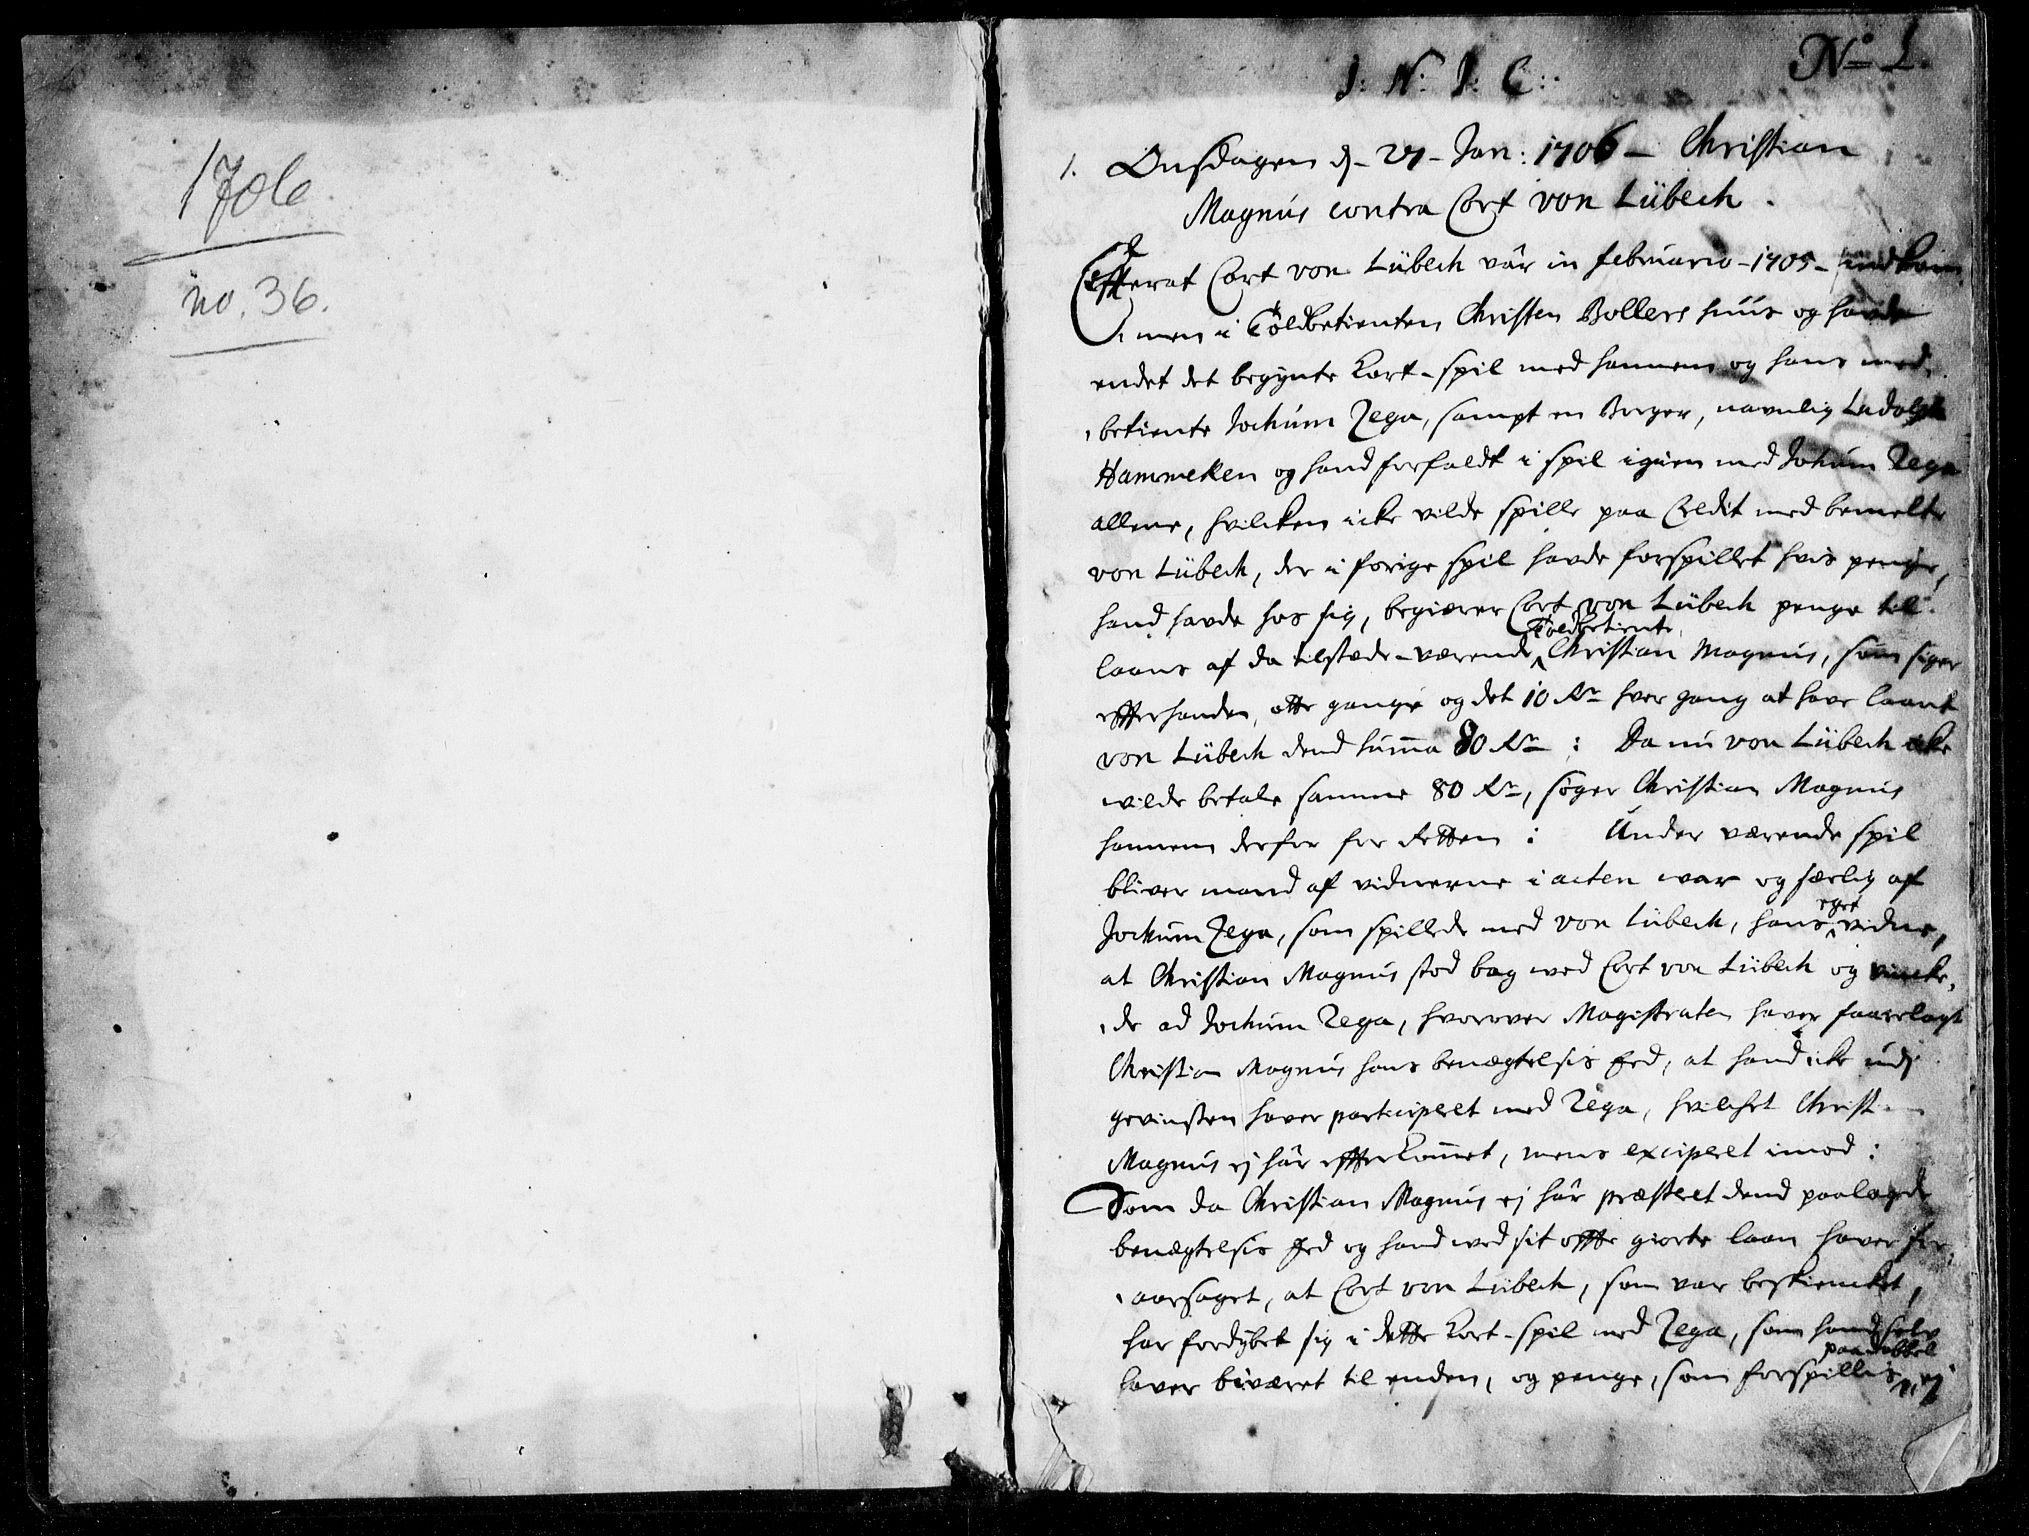 1706
no. 36.
No 1.
J: N: J: C:
1. Onsdagen d- 27- Jan: 1706 - Christian
Magnus contra Cort von Lübech.
Effterat Cort von Lübech vár in februario - 1705 - indkom¬
men i Toldbetienten Christen Bollers huus og hafde
endet det begynte Kort-spil med hannem og hans med¬
betiente Jochum Zega, sampt en Borger, navnlig Ladolph
Hammeken og hand forfaldt i spil igien med Jochum Zega
allene, hvilcken icke vilde spille paa Credit med bemelte
von Lübech, der i forige spil havde forspillet hvis penge,
hand havde hos sig, begiærer Cort von Lübech penge til
Toldbetiente
laans af da tilstæde-værende Christian Magnus, som siger
effterhanden, otte gange og det 10 Rdr hver gang at have laant
von Lübech dend summa 80 Rdr : Da nu von Lübech icke
vilde betale samme 80 Rdr, søger Christian Magnus
hannem derfor for Retten : Under værende spil
bliver mand af vidnerne i acten war og særlig af
eget
Jochum Zega, som spillede med von Lübech, hans vidne,
at Christian Magnus stod bag ved Cort von Lübech og vincke¬
de ad Jochum Zega, hvorover Magistraten haver faarelagt
Christian Magnus hans benægtelsis Eed, at hand icke udj
gevinsten haver participeret med Zega, hvilchet Christian
Magnus ej hár effterkommet, mens exciperet imod :
Som da Christian Magnus ej hár præsteret dend paalagde
benægtelsis Eed og hand ved sit offte giorte laan haver for¬
aarsaget, at Cort von Lübech, som var beskiencket,
har fordybet sig i dette Kort-spil med Zega, som hand selv
paa dobbel
haver biværet til enden, og penge, som forspillis, ej